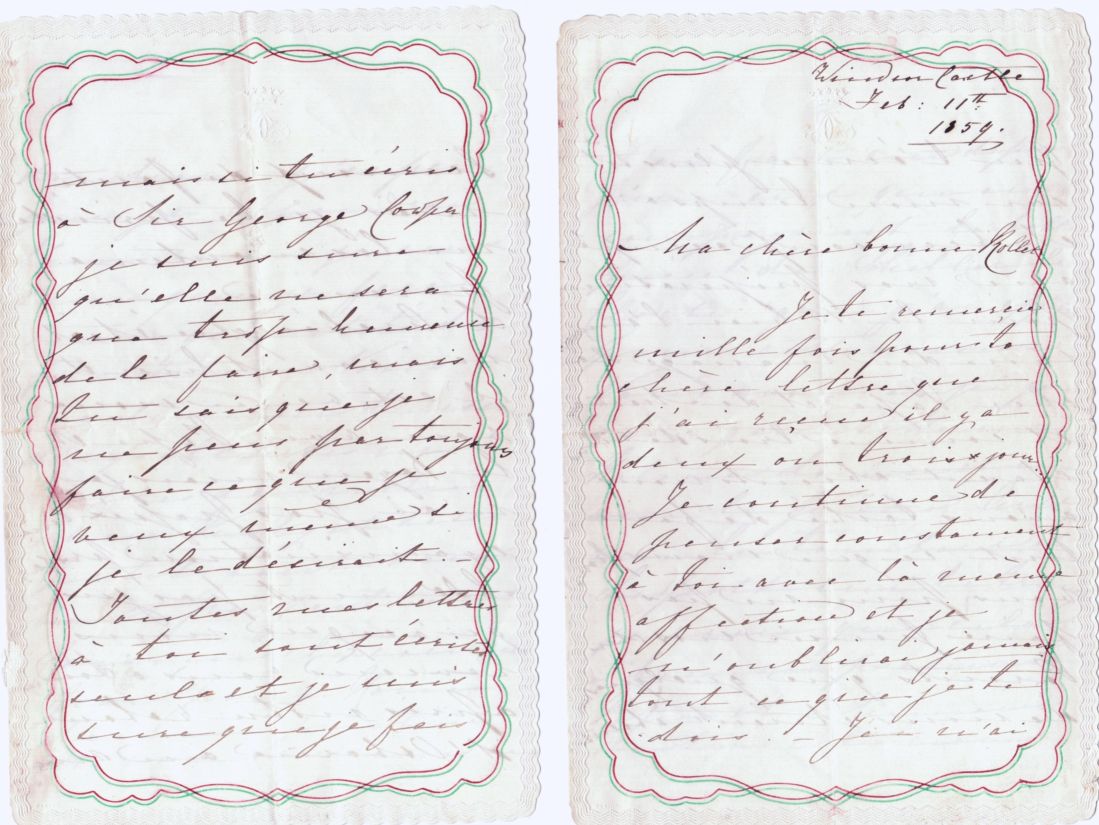 Windsor Castle
Feb: 11th
1859.
Ma chère bonne Rollet
Je te remercie
mille fois pour ta
chère lettre que
j'ai reçue il y a
deux ou trois jours.
Je continue de
penser constament
à toi avec la même
affection et je
n'oublirai jamais
tout ce que je te
dois. – Je n'ai
mais si tu écris
à Sir George Couper
je suis sure
qu'elle ne sera
que trop heureuse
de le faire, mais
tu sais que je
ne peus pas toujours
faire ce que je
veux même si
je le désirait. –
Toutes mes lettres
à toi sont écrites
seule et je suis
sure que je fais